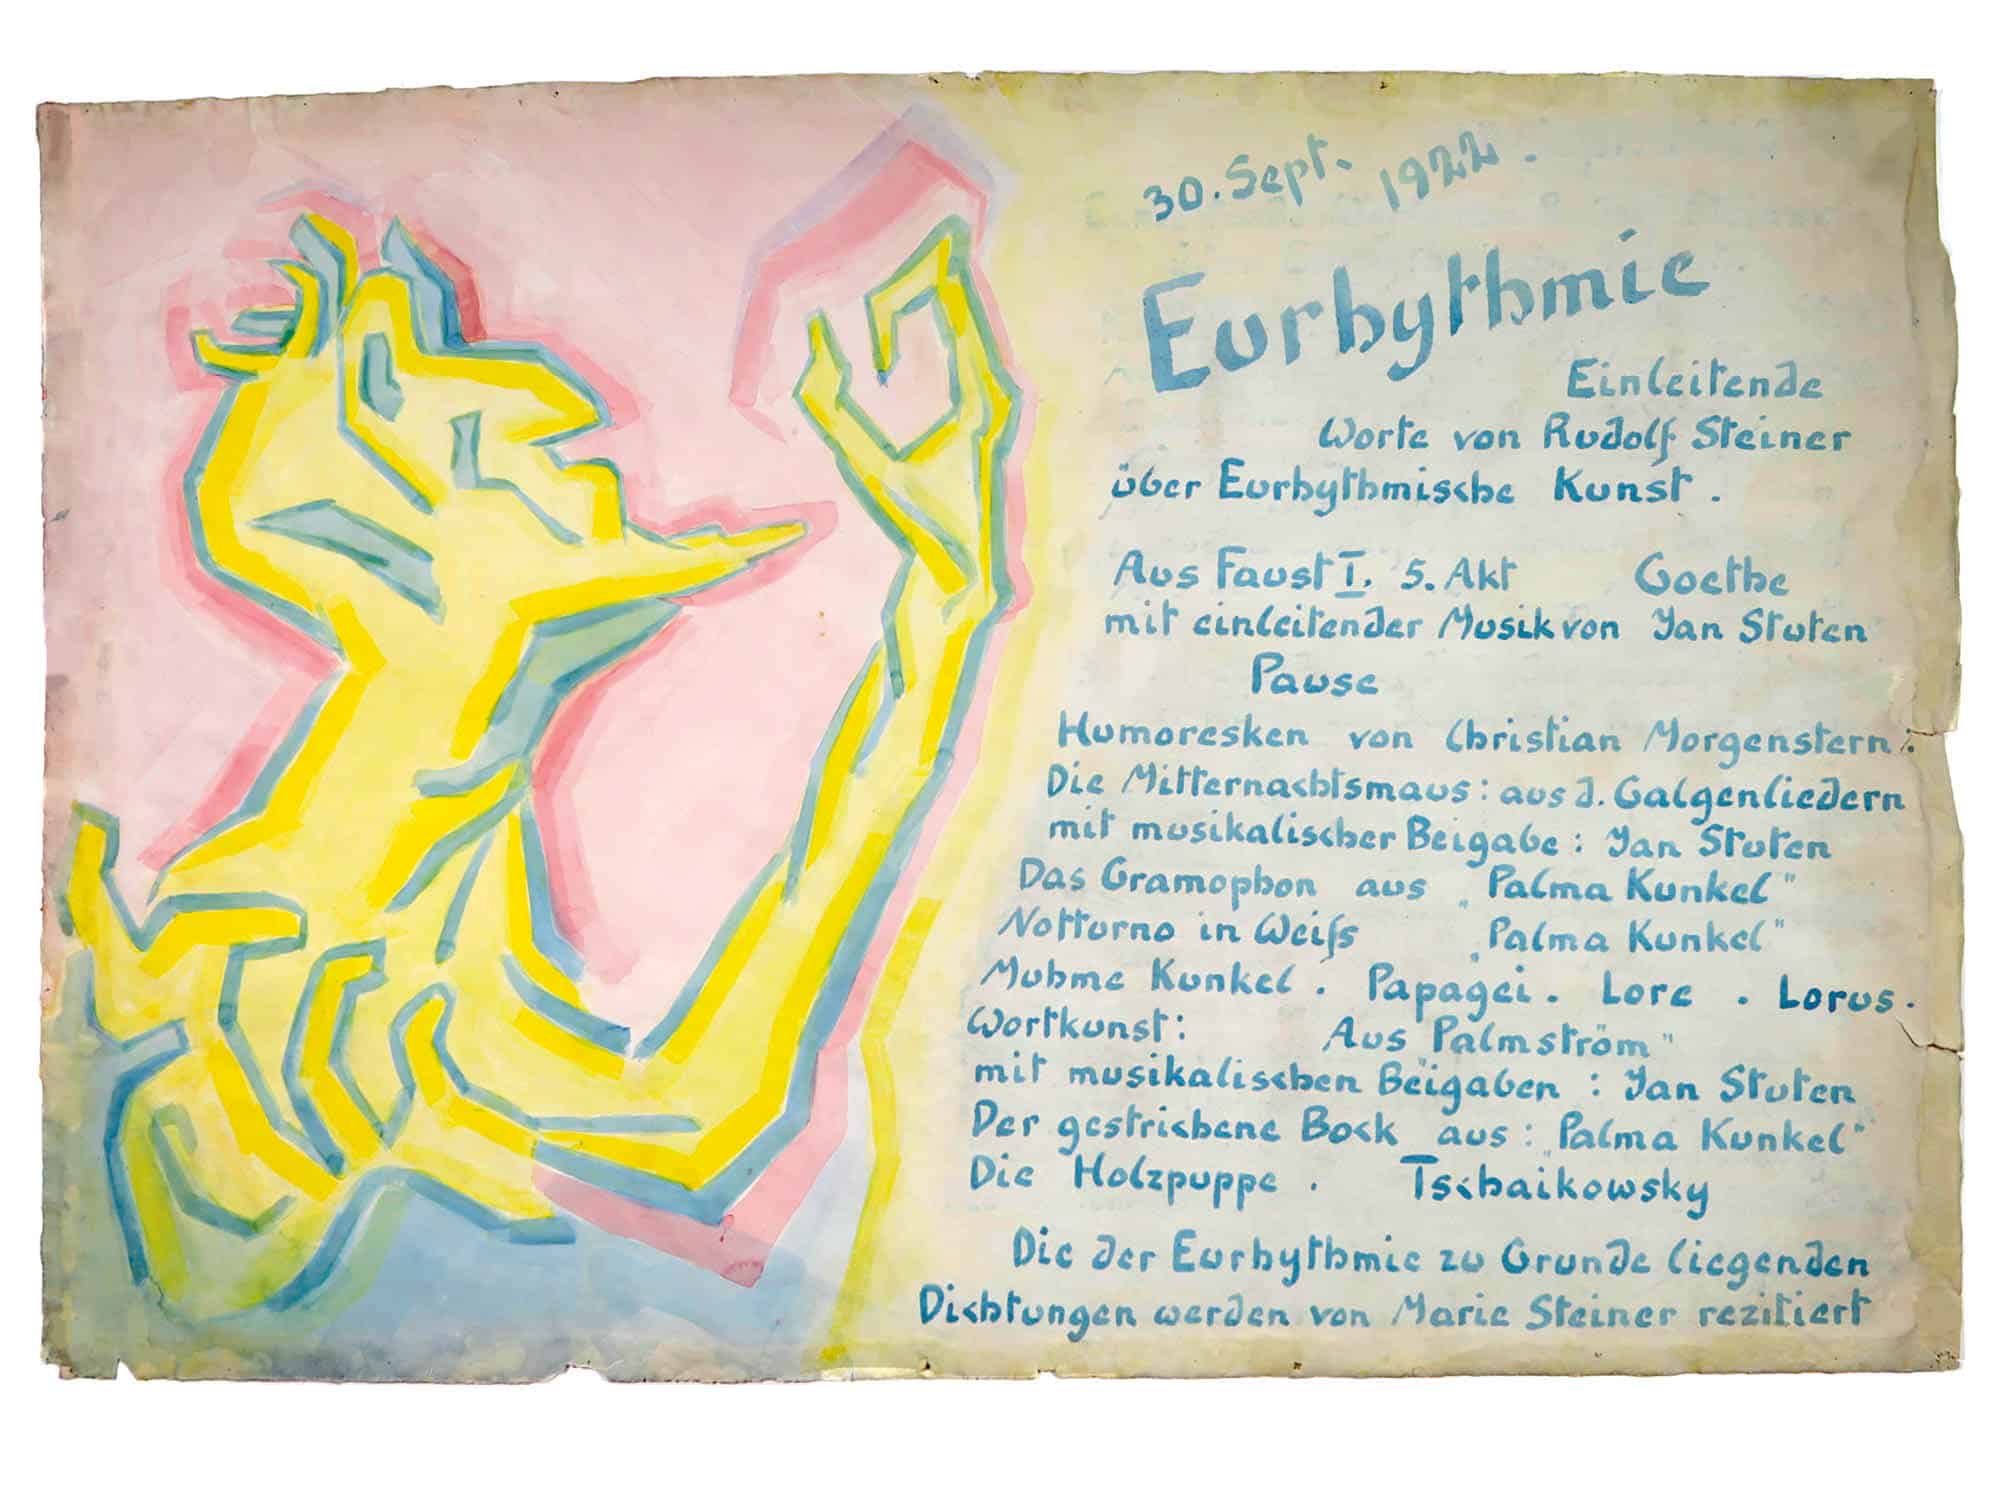 30. Sept. 1922.
Eurhythmie
Einleitende
Worte von Rudolf Steiner
über Eurhythmische Kunst.
Aus Faust I. 5. Akt Goethe
mit einleitender Musik von Jan Stuten
Pause
Humoresken von Christian Morgenstern:
Die Mitternachtsmaus: aus d. Galgenliedern
mit musikalischer Beigabe: Jan Stuten
Das Gramophon aus „Palma Kunkel"
Notturno in Weiſs „Palma Kunkel"
Muhme Kunkel. Papagei. Lore. Lorus.
Wortkunst: Aus „Palmström"
mit musikalischen Beigaben: Jan Stuten
Der gestrichene Bock aus: „Palma Kunkel"
Die Holzpuppe. Tschaikowsky
Die der Eurhythmie zu Grunde liegenden
Dichtungen werden von Marie Steiner rezitiert